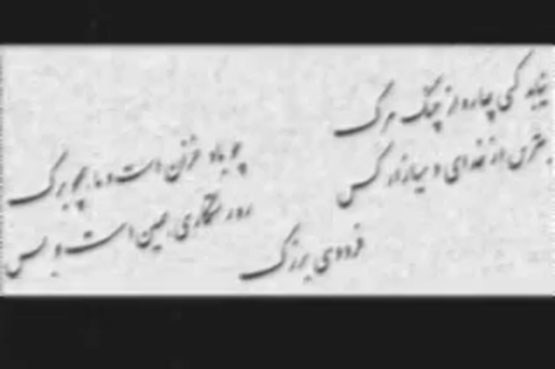 نیابد کسی چاره از چنگ مرگ
چو باد خزان است و ما چو برگ
بترس از خدای و میازار کس
ره رستگاری همین است و بس
فردوسی بزرگ